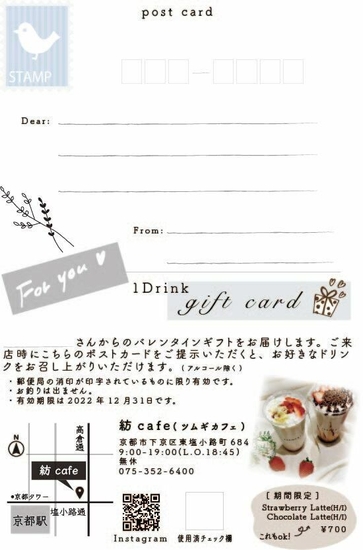 post card
STAMP
Dear:
From:
For you
1Drink
gift card
さんからのバレンタインギフトをお届けします。ご来
店時にこちらのポストカードをご提示いただくと、お好きなドリン
クをお召し上がりいただけます。(アルコール除く)
・郵便局の消印が印字されているものに限り有効です。
・お釣りは出ません。
・有効期限は2022年12月31日です。
紡 cafe(ツムギカフェ)
京都市下京区東塩小路町684
9:00-19:00(L.O.18:45)
無休
075-352-6400
N
高倉通
紡 cafe
京都タワー
京都駅
塩小路通
Instagram
使用済チェック欄
[期間限定]
Strawberry Latte(H/I)
Chocolate Latte(H/I)
¥700
これもok!